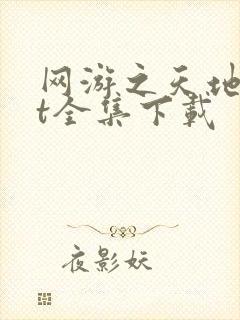 网游之天地
t全集下载
夜影妖